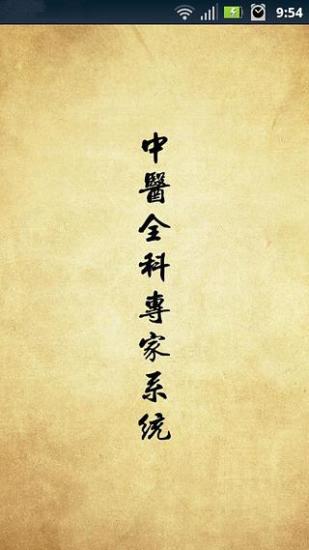 9:54
中醫全科專家系統